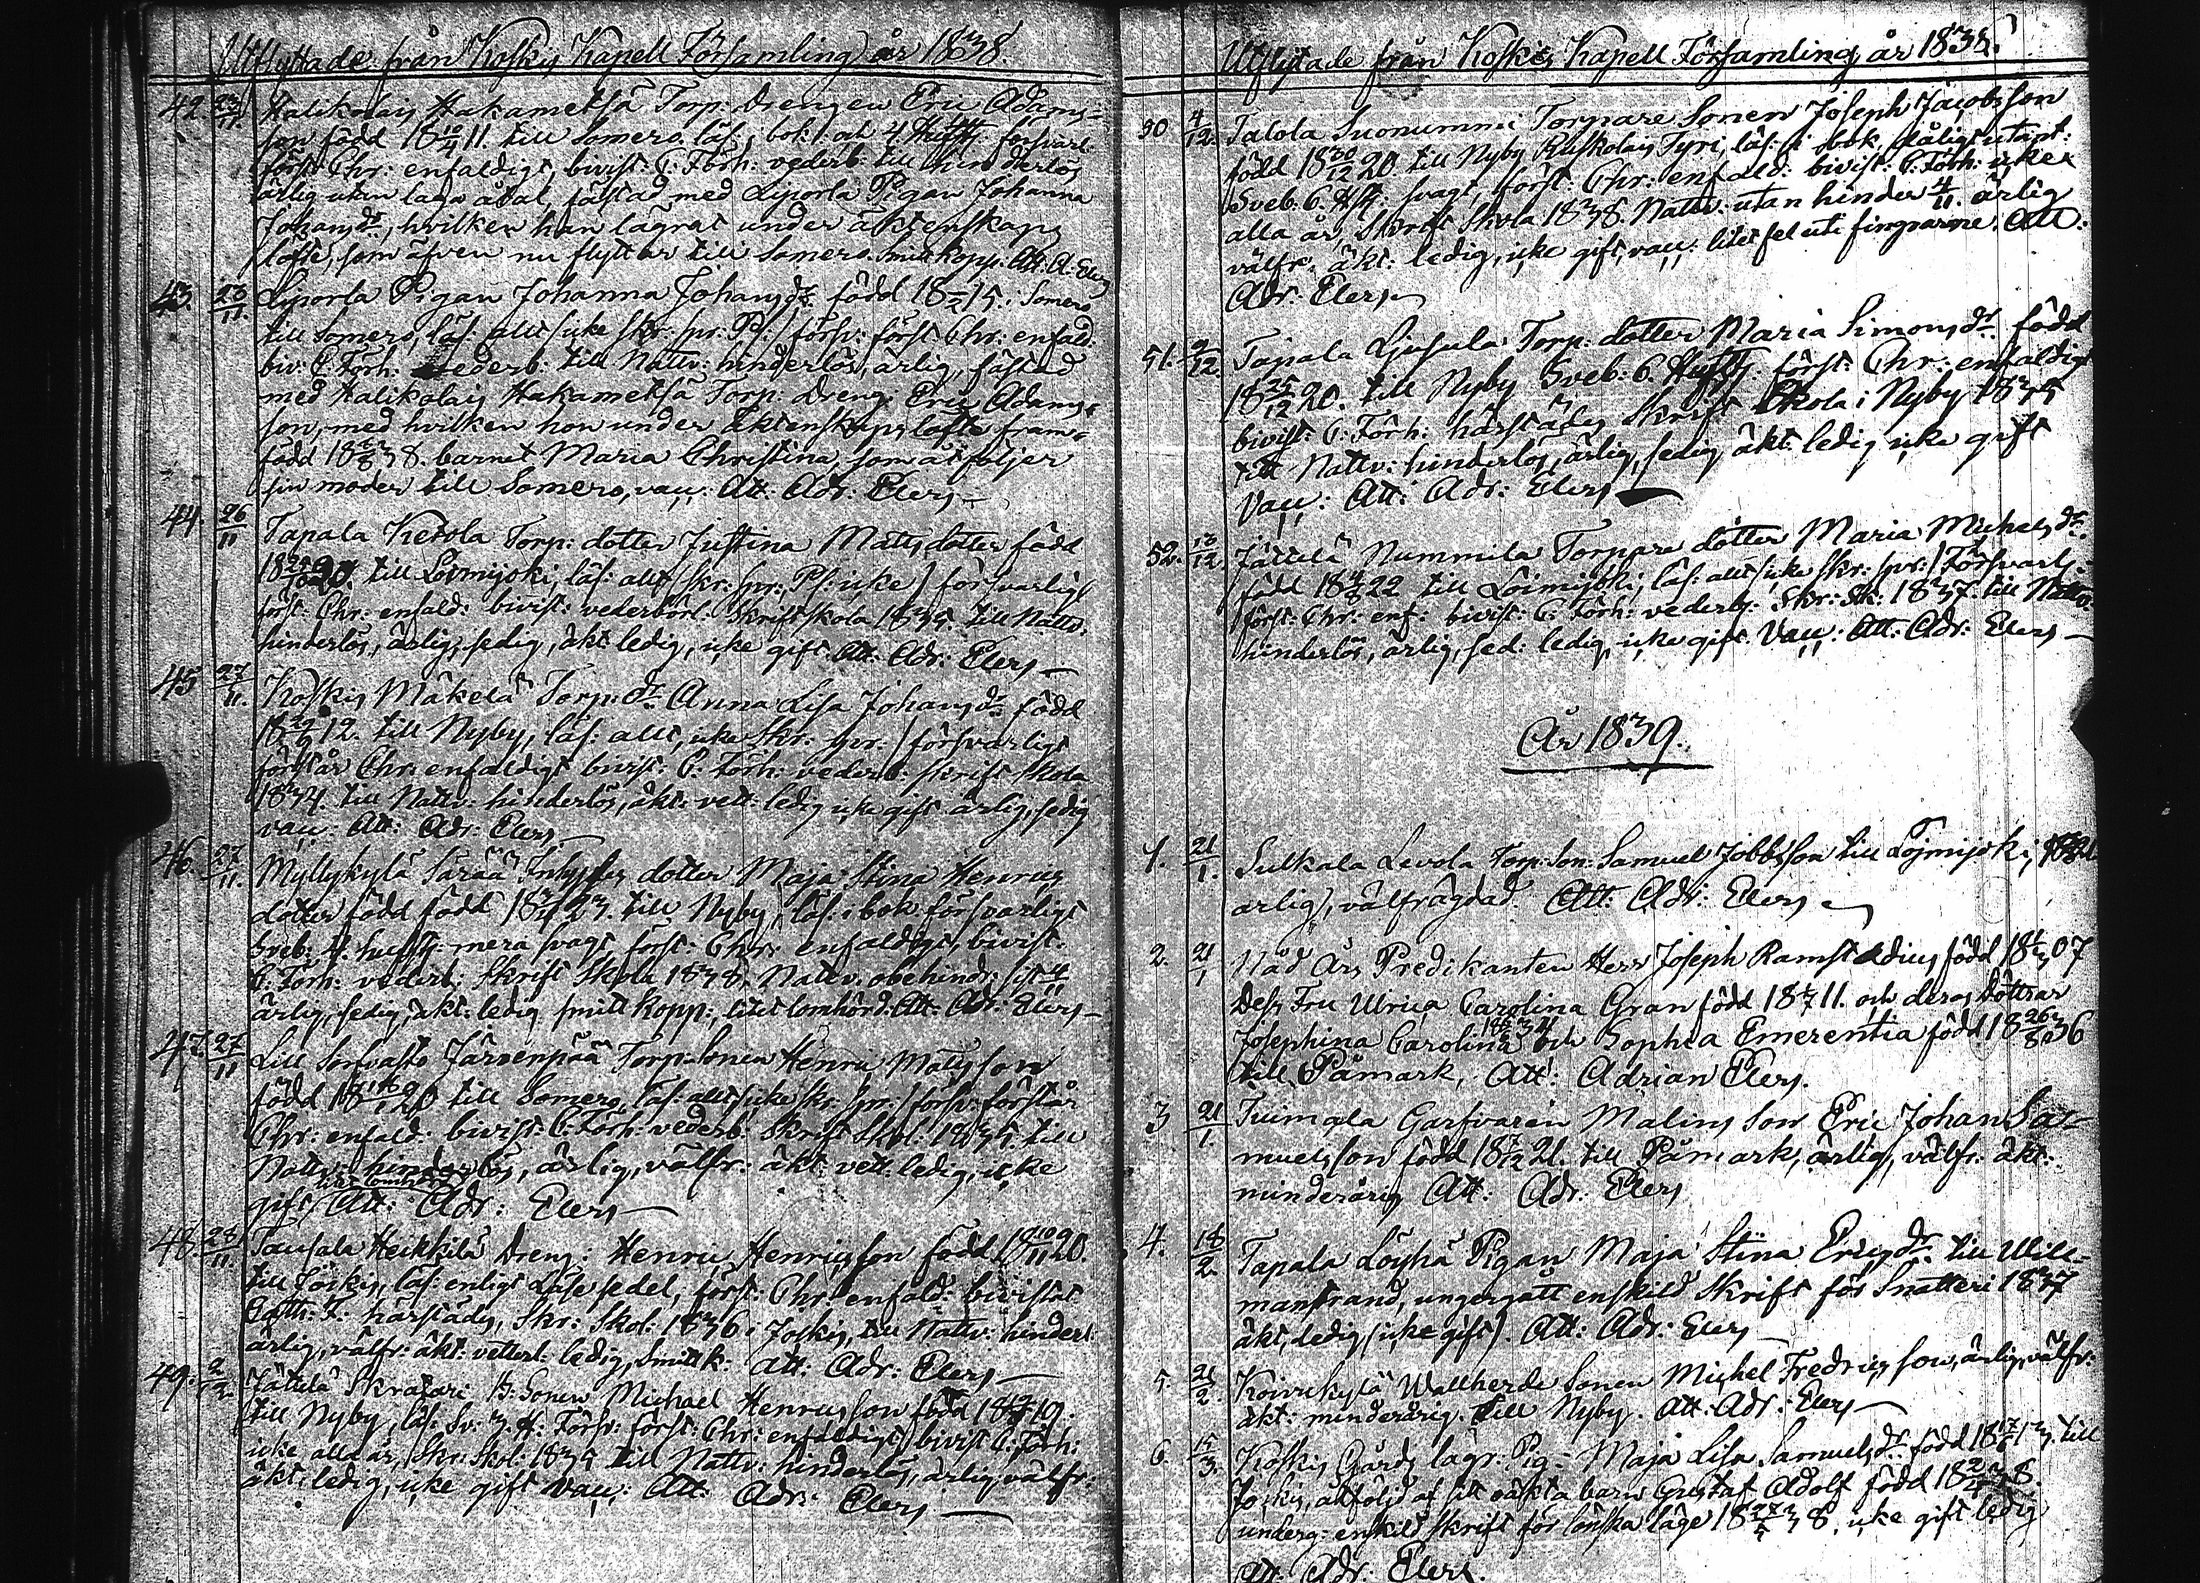 Utflyttade från Koskis Kapell Församling år 1838.
42. 23/11. Halikolais Hakametsä Torp. Drengen Eric Adams-
son född 18 10/4 11. till Somero, läs. i bok och 4 Hufst. försvarl.
först. Chr: enfaldigt, bivist. C. Förh: vederb. till hinderlös
ärlig utan laga åtal, fästad med Liporla Pigan Johanna
Johansdr, hvilken han lägrat under äktenskaps
löfte, som äfven nu flyttar till Somero. Smittkopp. Att. A. Elers
43. 23/11. Liporla Pigan Johanna Johansdr född 18 15. i Somero
till Somero, läs. allt (icke skr. spr. Ps:) försv: först Chr: enfald.
biv: C. Förh: vederb. till Nattv: hinderlös, ärlig, fästad
med Halikolais Hakametsä Torp. Dreng: Eric Adams-
son, med hvilken hon under äktenskaps löfte fram-
född 18 38. barnet Maria Christina, som åtföljer
sin moder till Somero, vacc: Att: Adr: Elers
44. 26/11 Tapala Kerola Torp: dotter Justina Mattsdotter född
18 till Loimijoki, läs: allt (skr: spr: Ps: icke) försvarligt
först: Chr: enfald: bivist: vederbörl. Skriftskola 1835. till Nattv:
hinderlös, ärlig, sedig, äkt. ledig, icke gift Att: Adr: Elers
45 27/11. Koskis Mäkelä Torp: dr Anna Lisa Johansdr född
18 12. till Nyby, läs: allt, icke Skr. spr. försvarligt
förstår Chr: enfaldigt bivist: C. Förh: vederb: skrift skola
1834. till Nattv: hinderlös, äkt: vett. ledig icke gift ärlig, sedig
vacc: Att: Adr: Elers
46. 27/11. Myllykylä Sarää dotter Maja Stina Henrics
dotter född född 18 23. till Nyby, läs: i bok försvarligt
Sveb: 4. hufst: mera svagt först: Chr: enfaldigt, bivist.
C. Förh: vederb: Skrift Skola 1838. Nattv. obehindr: sist 4/11
ärlig, sedig, äkt: ledig smittkopp:, litet lomhörd. Att: Adr: Elers
47. 27/11 Lill Sorvasto Järvenpää Torp: Sonen Henric Matsson
född 18 20 till Somero, läs: allt (icke skr: spr:) försv: förstår
Chr: enfald: bivist: C. Förh: vederb: Skrift Skol: 1835 till
Nattv: hinderlös, ärlig, välfr: äkt: vett. ledig, icke
gift, litet lomhörd Att: Adr: Elers
48. 28/11. Tausala Heikkilä Dreng: Henric Henricsson född 18 20.
till Jockis, läs: enligt Läse sedel, först: Chr: enfald: bivistat
Cath: F: härstädes, Skr: Skol: 1836 i Jockis, till Nattv: hinderl:
ärlig, välfr: äkt: vetterl: ledig, Smittk: Att: Adr: Elers
49. 2/12. Jättelä Skräfari Tp: Sonen Michael Henricsson född 18 19.
till Nyby, läs. Sv: 3. H: Försv: först: Chr: enfaldigt, bivist C: Förh:
icke alla år, Skr: Skol: 1835 till Nattv: hinderlös, ärlig, välfr:
äkt: ledig, icke gift vacc: Att: Adr: Elers
Utflyttade från Koskis Kapell Församling år 1838.
50 4/12. Talola Suonummi Torpare Sonen Joseph Jacobsson
född 18 30/12 20 till Nyby Ruskolais Tyri, läs: i bok, dåligt utant:
Sveb. 6. Hst: svagt, först: Chr: enfald: bivist: C. Förh: icke
alla år, Skrift Skola 1838. Nattv: utan hinder 4/11 ärlig
välfr: äkt: ledig, icke gift, vacc: litet fel uti fingrarne. Att:
Adr: Elers
51. 9/12. Tapala Ljusula Torp: dotter Maria Simonsdr född
18 25/12 20. till Nyby Sveb: 6. Hufst: först: Chr: enfaldigt
bivist: C. Förh: härstädes Skrift Skola i Nyby 1835
till Nattv: hinderlös, ärlig, sedig äkt: ledig icke gift
Vacc: Att: Adr: Elers
52. 13/12 Jättelä Nummila Torpare dotter Maria Michelsdr
född 18 22 till Loimijoki, läs: allt (icke skr: spr:) Försvarl:
först: Chr: enf: bivist: C. Förh: vederb: Skr: Sk: 1837. till Nattv:
hinderlös, ärlig, sed: ledig, icke gift. Vacc: Att: Adr: Elers
År 1839.
1. 21/1. Sulkala Levola Torp: Son: Samuel Jobbsson till Lojmijoki,
ärlig, välfrägdad. Att: Adr: Elers
2. 21/1 Nåd Års Predikanten Herr Joseph Ramstadius, född 18 07
Dess Fru Ulrica Carolina Gran född 18 11. och deras Döttrar
Josephina Carolina och Sophia Emerentia född 18 26/8 36
till Påmark, Att: Adrian Elers.
3 21/1. Tuimala Garfvaren Malins Son Eric Johan Sa-
muelsson född 18 21. till Påmark, ärlig, välfr: äkt:
minderårig Att: Adr: Elers
4. 18/2. Tapala Löyhä Pigan Maja Stina Ericsdr till Will-
manstrand, undergått enskild Skrift för Snatteri 1837
äkt, ledig (icke gift). Att: Adr: Elers
5. 21/2. Koivukylä Wallherde Sonen Michel Fredricsson, ärlig, välfr:
äkt: minderårig. till Nyby. Att: Adr: Elers
6. 15/3. Koskis Gårds lägr: Pig: Maja Lisa Samuelsdr född 18 13. till
Jockis, åtföljd af sitt oäkta barn Gustaf Adolf född 18 38.
underg: enskild skrift för lönska läge 18 38. icke gift ledig
Att. Adr: Elers.